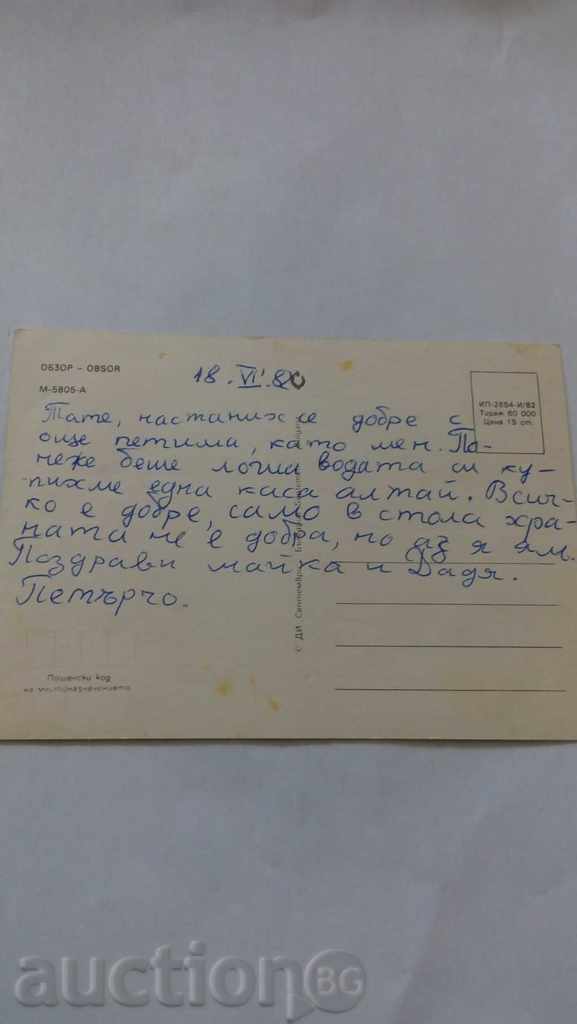 ОБЗОР - OBSOR
М-5805-А
18. VI.
ИП-2854-И/82
Тираж 60 000
Цена 15 ст.
Тате, настаних се добре с
още петима, като мен. По-
неже беше лоша водата си ку-
пихме една каса алтай. Всич-
ко е добре, само в стола хра-
ната не е добра, но аз я ям.
Поздрави майка и Дадя.
Петърчо.
© ДИ „Септември"
Пощенски код
на местоназначението
auctionBG